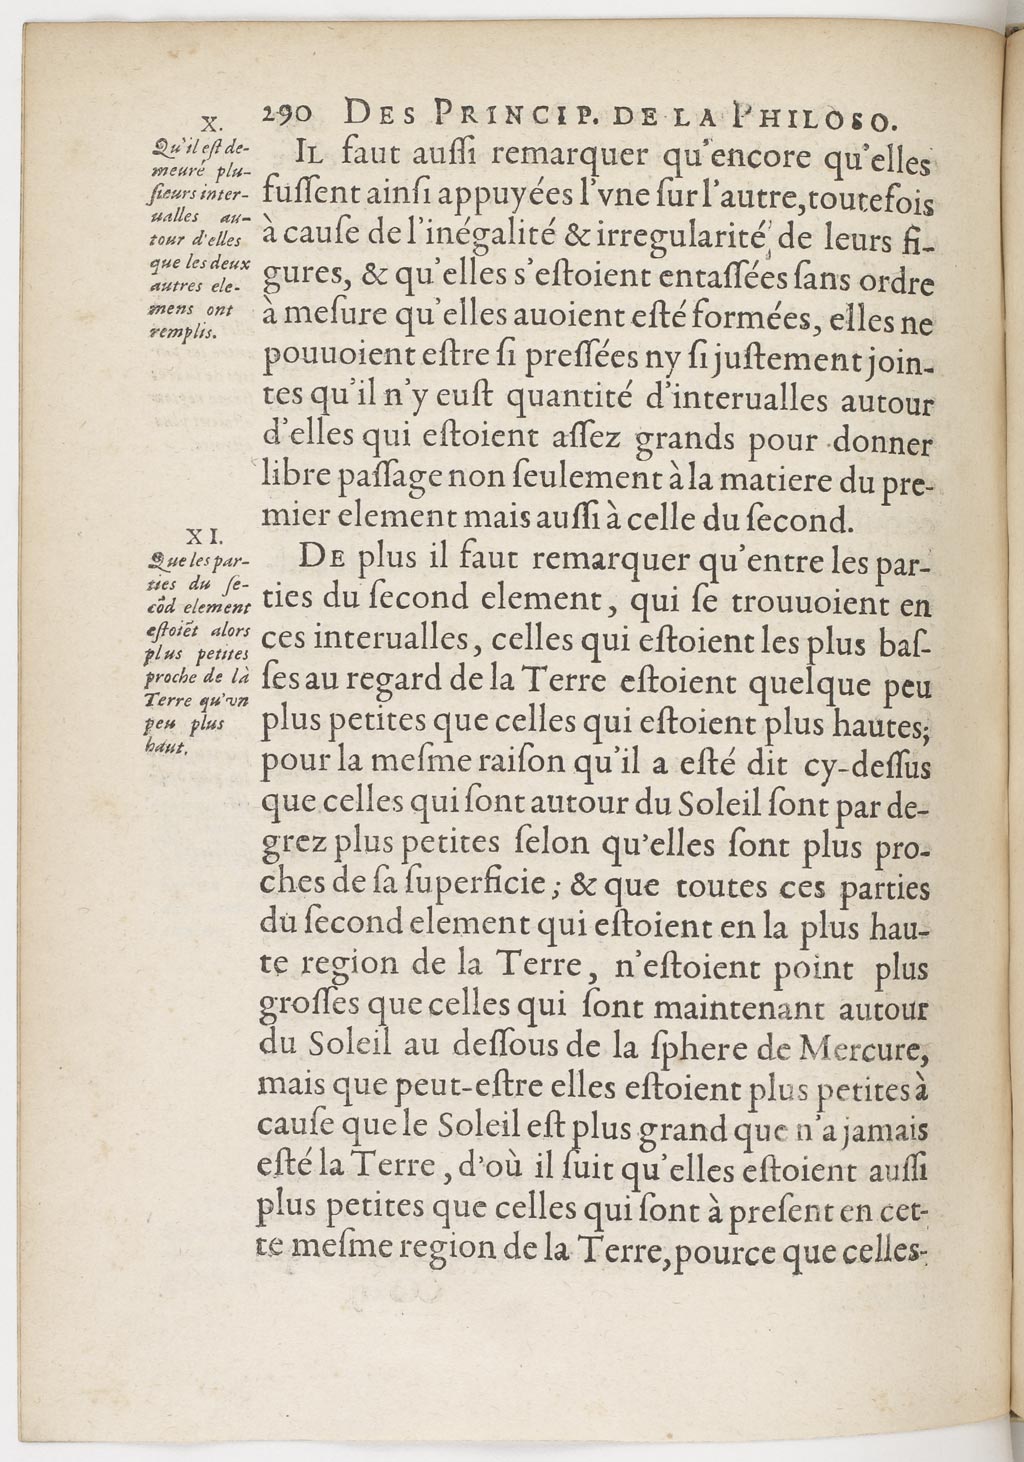 290 DES PRINCIP. DE LA PHILOSO.
X.
Qu'il eſt de-
meuré plu-
ſieurs inter-
ualles au-
tour d'elles
que les deux
autres ele-
mens ont
remplis.
IL faut auſſi remarquer qu'encore qu'elles
fuſſent ainſi appuyées l'vne ſur l'autre, toutefois
à cauſe de l'inégalité & irregularité de leurs fi-
gures, & qu'elles s'eſtoient entaſſées ſans ordre
à meſure qu'elles auoient eſté formées, elles ne
pouuoient eſtre ſi preſſées ny ſi juſtement join-
tes qu'il n'y euſt quantité d'interualles autour
d'elles qui eſtoient aſſez grands pour donner
libre paſſage non ſeulement à la matiere du pre-
mier element mais auſſi à celle du ſecond.
XI.
Que les par-
ties du ſe-
cõd element
eſtoiẽt alors
plus petites
proche de la
Terre qu'vn
peu plus
haut.
DE plus il faut remarquer qu'entre les par-
ties du ſecond element, qui ſe trouuoient en
ces interualles, celles qui eſtoient les plus baſ-
ſes au regard de la Terre eſtoient quelque peu
plus petites que celles qui eſtoient plus hautes;
pour la meſme raiſon qu'il a eſté dit cy-deſſus
que celles qui ſont autour du Soleil ſont par de-
grez plus petites ſelon qu'elles ſont plus pro-
ches de ſa ſuperficie; & que toutes ces parties
du ſecond element qui eſtoient en la plus hau-
te region de la Terre, n'eſtoient point plus
groſſes que celles qui ſont maintenant autour
du Soleil au deſſous de la ſphere de Mercure,
mais que peut-eſtre elles eſtoient plus petites à
cauſe que le Soleil eſt plus grand que n'a jamais
eſté la Terre, d'où il ſuit qu'elles eſtoient auſſi
plus petites que celles qui ſont à preſent en cet-
te meſme region de la Terre, pource que celles-